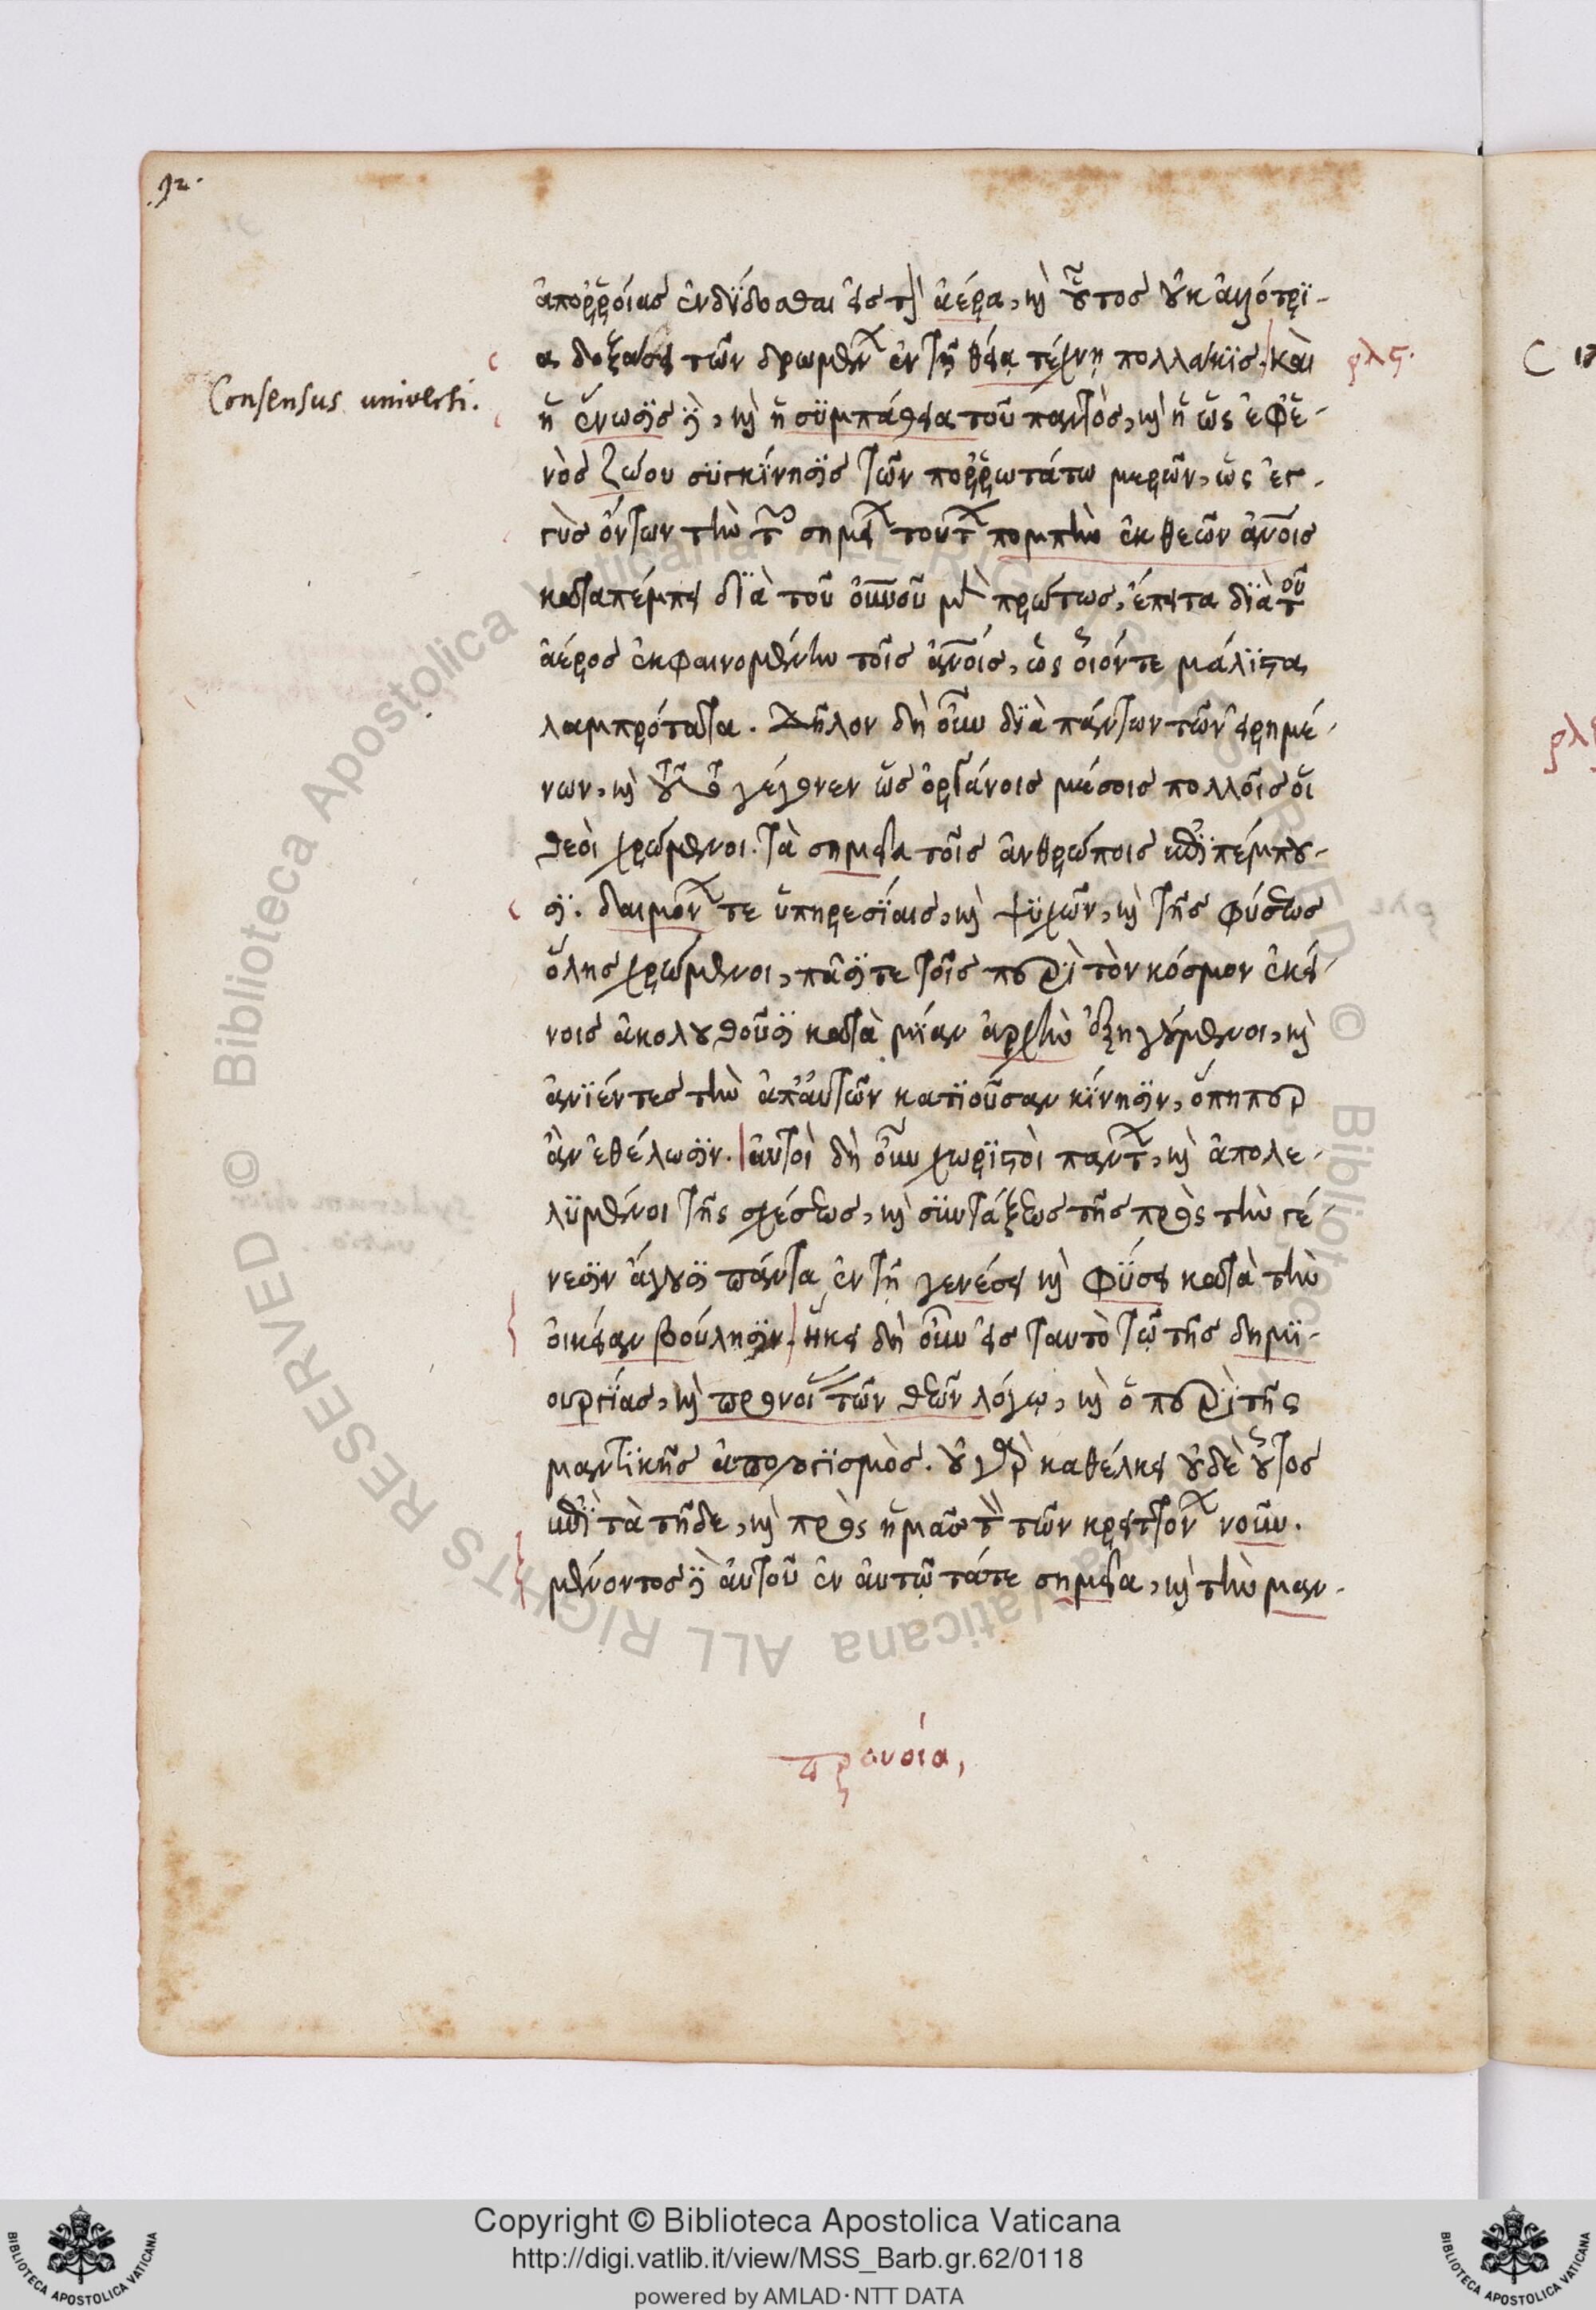 92.
ἀποῤῥοίας ἐνδίδοσθαι εἰς τὸν ἀέρα, καὶ οὗτος οὐκ ἀλλότρι-
α δοξάσει τῶν δρωμένων ἐν τῇ θείᾳ τέχνῃ πολλάκις. καὶ
ρλϛ.
Consensus universi.
ἡ ἕνωσις δὲ, καὶ ἡ συμπάθεια τοῦ παντὸς, καὶ ἡ ὡς ἐφ' ἑ-
νὸς ζώου συγκίνησις τῶν πορρωτάτω μερῶν, ὡς ἐγ-
γὺς ὄντων τὴν τῶν σημείων τούτων πομπὴν ἐκ θεῶν ἀνοις
καταπέμπει διὰ τοῦ οὐνοῦ μὲν πρώτως, ἔπειτα διὰ τοῦ
ἀέρος ἐκφαινομένην τοῖς ἀνοις, ὡς οἷόν τε μάλιστα
λαμπρότατα. Δῆλον δὴ οὖν διὰ πάντων τῶν εἰρημέ-
νων, καὶ τοῦτο γέγονεν ὡς ὀργάνοις μέσοις πολλοῖς οἱ
θεοὶ χρώμενοι. τὰ σημεῖα τοῖς ἀνθρώποις ἐπιπέμπου-
σι. δαιμόνων τε ὑπηρεσίαις, καὶ ψυχῶν, καὶ τῆς φύσεως
ὅλης χρώμενοι, πᾶσί τε τοῖς περὶ τὸν κόσμον ἐκεί-
νοις ἀκολουθοῦσι κατὰ μίαν ἀρχὴν ἐξηγούμενοι, καὶ
ἀνιέντες τὴν ἀπ' αὐτῶν κατιοῦσαν κίνησιν, ὅπηπερ
ἂν ἐθέλωσιν. αὐτοὶ δὴ οὖν χωριστοὶ πάντων, καὶ ἀπολε-
λυμένοι τῆς σχέσεως, καὶ συντάξεως τῆς πρὸς τὴν γέ-
νεσιν ἄγουσι πάντα ἐν τῇ γενέσει καὶ φύσει κατὰ τὴν
οἰκείαν βούλησιν. ἥκει δὴ οὖν εἰς ταυτὸ τῷ τῆς δημι-
ουργίας, καὶ προνοίας τῶν θεῶν λόγῳ, καὶ ὁ περὶ τῆς
μαντικῆς ἀπολογισμὸς. οὐ γὰρ καθέλκει οὐδὲ οὗτος
ἐπὶ τὰ τῇδε, καὶ πρὸς ἡμᾶς τὸν τῶν κρειττόνων νοῦν.
μένοντος δὲ αὐτοῦ ἐν αὐτῷ τά τε σημεῖα, καὶ τὴν μαν-
προνοία,
Copyright © Biblioteca Apostolica Vaticana
http://digi.vatlib.it/view/MSS_Barb.gr.62/0118
powered by AMLAD·NTT DATA
BIBLIOTECA APOSTOLICA VATICANA
BIBLIOTECA APOSTOLICA VATICANA
© Biblioteca Apostolica Vaticana ALL RIGHTS RESERVED
© Biblioteca Apostolica Vaticana ALL RIGHTS RESERVED